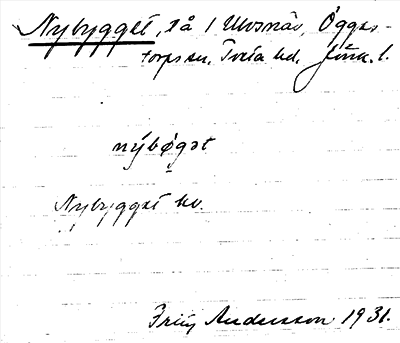 Nybygget, Lå 1 Ulvsnäs, Öggers-
torps sn, Tveta hd, Jönk. l.
nýbø̀gət
Nybygget hv.
Frity Andersson 1931.